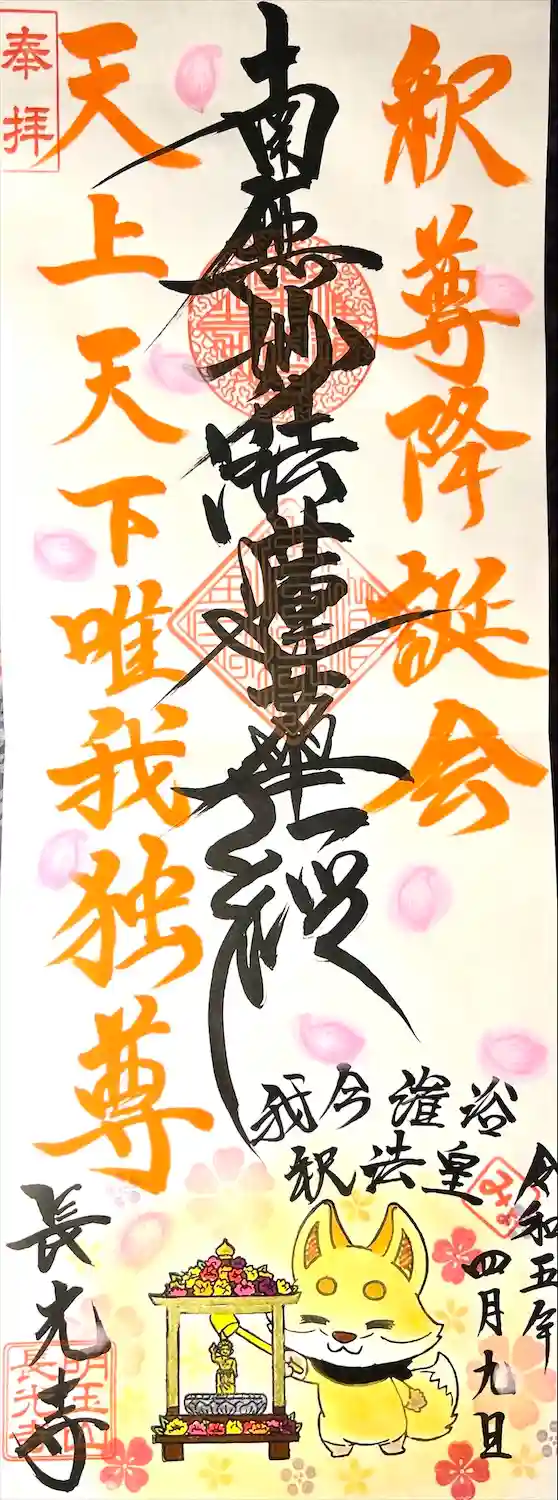 釈尊降誕会
南無妙法蓮華経
天上天下唯我独尊
奉拝
我今灌浴
釈法皇
令和五年
四月九日
長光寺